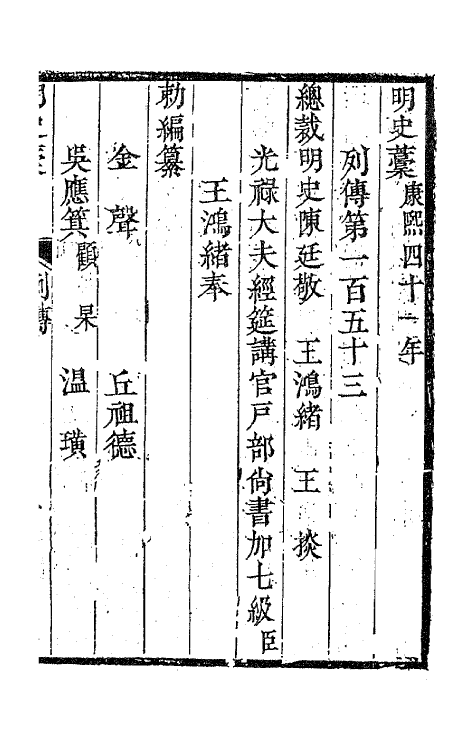 明史藁康熙四十一年
列傳第一百五十三
總裁明史陳廷敬　王鴻緒　王　掞
光祿大夫經筵講官戶部尚書加七級臣
王鴻緒奉
勅編纂
金　聲　丘祖德
吳應箕顧　杲　溫　璜
列傳